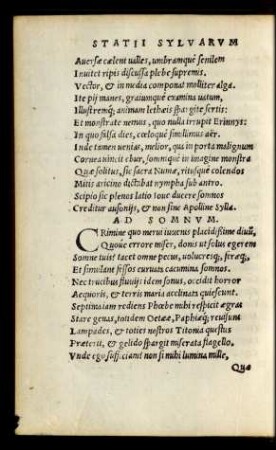 STATII SYLVARVM
Auersæ cælent ualles, umbramque senilem
Inuitet ripis discussa plebe supremis.
Vector, & in media componat molliter alga.
Ite pij manes, graiumque examina uatum,
Illustremq; animam lethæis spargite sertis:
Et monstrate nemus, quo nulli irrupit Erinnys:
In quo falsa dies, cœloque simillimus aër.
Inde tamen uenias, melior, qua in porta malignum
Cornea uincit ebur, somnique in imagine monstra
Quæ solitus, sic sacra Numæ, ritusque colendos
Mitis aricino dictabat nympha sub antro.
Scipio sic plenos latio Ioue ducere somnos
Creditur ausonijs, & non sine Apolline Sylla.
AD SOMNVM.
CRimine quo merui iuuenis placidissime diuum,
Quoue errore miser, donis ut solus egerem
Somne tuis? tacet omne pecus, uolucresq;, feræq;.
Et simulant fessos curuata cacumina somnos.
Nec trucibus fluuijs idem sonus, occidit horror
Aequoris, & terris maria acclinata quiescunt.
Septima iam rediens Phœbe mihi respicit ægras
Stare genas, totidem Oetææ, Paphiæq; reuisunt
Lampades, & toties nostros Titonia questus
Præterit, & gelido spargit miserata flagello.
Vnde ego sufficiam? non si mihi lumina mille,
Quæ